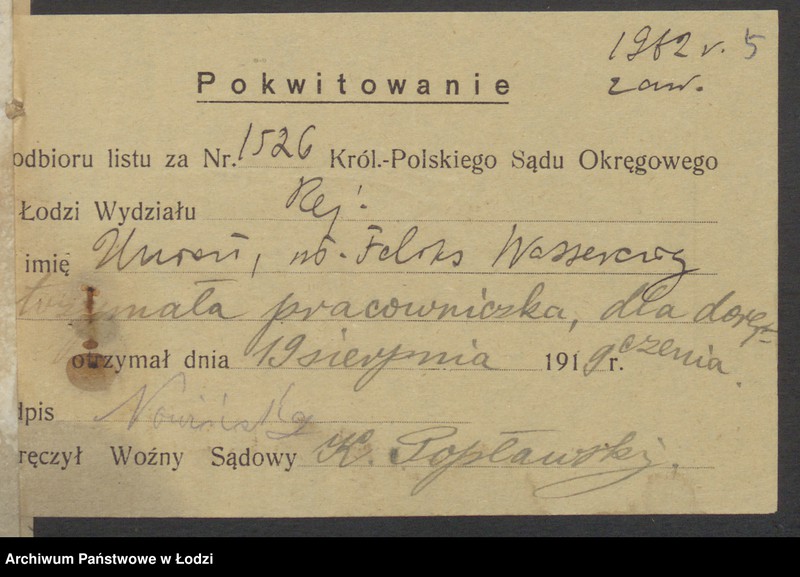 1962 r. 5
zaw.
Pokwitowanie
odbioru listu za Nr. 1526 Król.-Polskiego Sądu Okręgowego
Łodzi Wydziału Rej.
imię Feliks
otrzymała pracowniczka, dla doręczenia
otrzymał dnia 19 sierpnia 1919 r.
dpis Nowińska
ręczył Woźny Sądowy K. Popławski.
Archiwum Państwowe w Łodzi